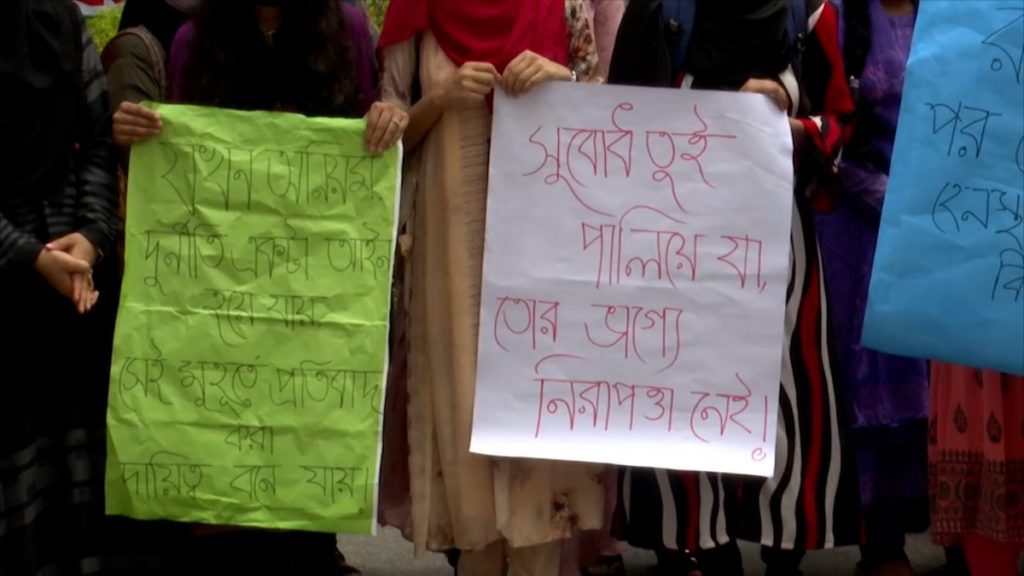 যখন অনিয়ম
দুর্নীতি একটা আইন
হয়ে যায়,
সেই মুহূর্তে প্রতিবাদ
করা
দায়িত্ব বনে যায়।
সুবোধ তুই
পালিয়ে যা,
তোর ভাগ্যে
নিরাপত্তা নেই!
পর